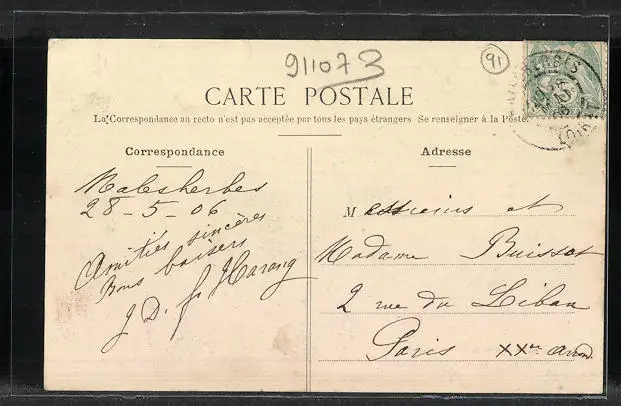 911073
91
CARTE POSTALE
La Correspondance au recto n'est pas acceptée par tous les pays étrangers Se renseigner à la Poste.
Correspondance
Adresse
Malesherbes
28-5-06
Amitiés sincères
Bons baisers
J D. Harang
M et
Madame Buisset
2 rue du Liban
Paris XXe
LOIRET